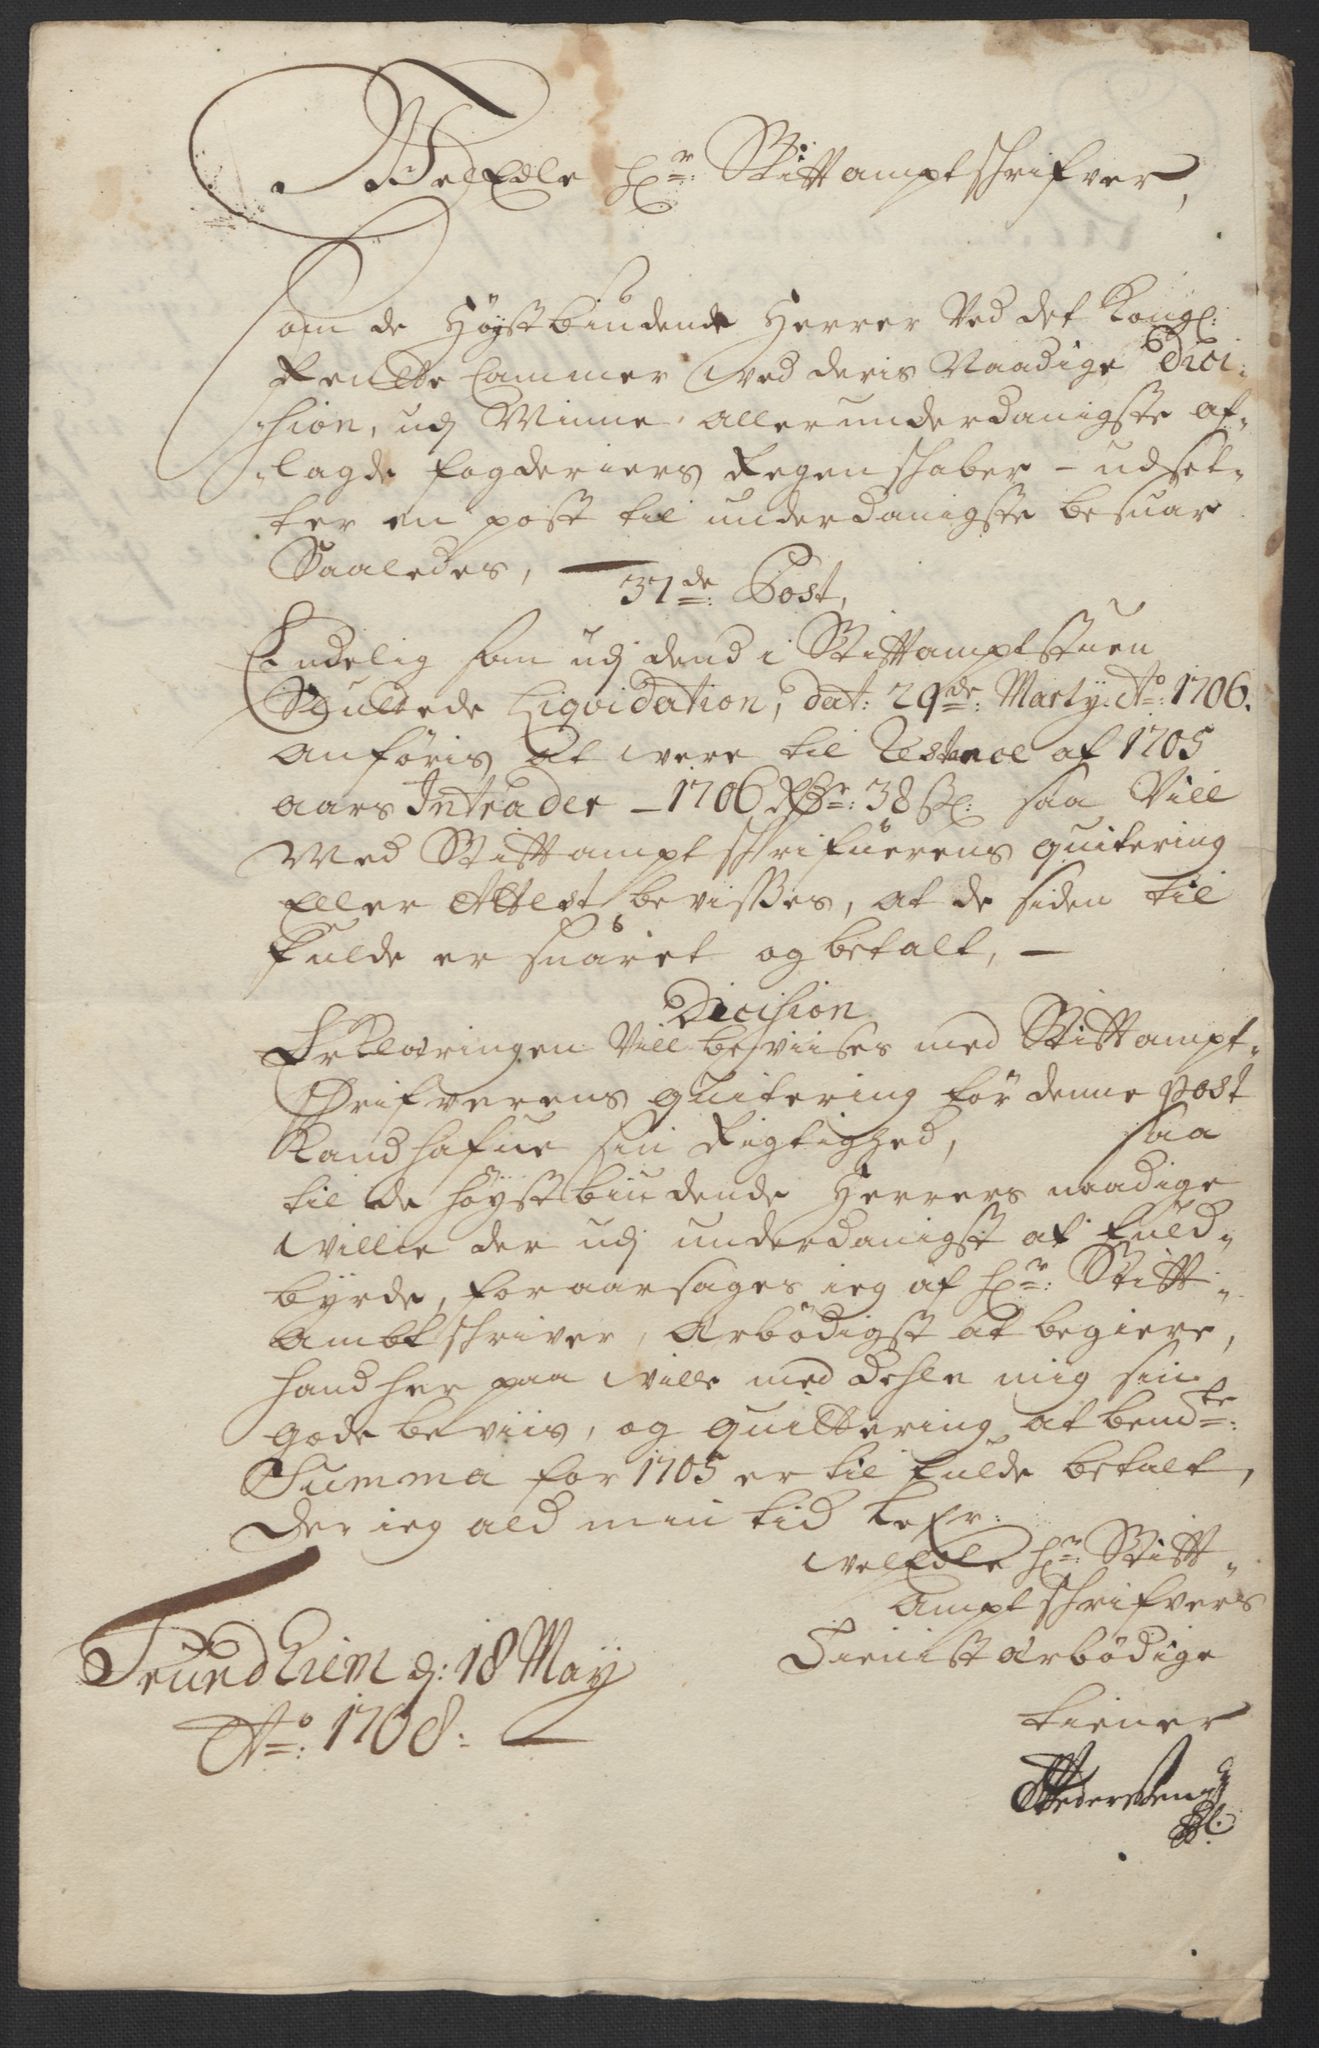 WelEdle Hr: Stiftamptschrifver,
Som de Høystbiudende Herrer Ved det Kongl:
Rentte Cammer Ved deris Naadige Dici-
shion, udj Minne allerunderdanigste af-
lagde fogderiers Regenschaber - udset-
ter en post til underdanigste besuar
Saaledes, —
37de: Post,
Endelig som udj dend i Stiftamptstuen
Sluttede Liqvidation, dat: 29de: Marty Ao: 1706.
anføris at were til Restance af 1705
aars Intrader - 1706 Rdr: 38 s: saa Vill
Med Stiftamptschrifuerens quitering
Eller Attest bevisses, at de siden til
fulde er suaret og betalt, —
Dicishion
Erklaringen Vill beviises med Stiftampt-
schrifverens quitering før denne post
Kand hafue sin Rigtighed, saa
til de høystbiudende Herrers naadige
Willie der udj underdanigst at fuld-
byrde, foraarsages ieg af Hr: Stift-
ambtschriver, Ærbödigst at begiere,
hand her paa Wille meddehle mig sin
gode beviis, og quittering at bemte:
Summa for 1705 er til fulde betalt,
Der ieg ald min tid lefr:
WelEdle Hr: Stift-
Amptschrifvers
Tienistærbödige
tiener
Trundhiem d: 18 May
Ao: 1708.